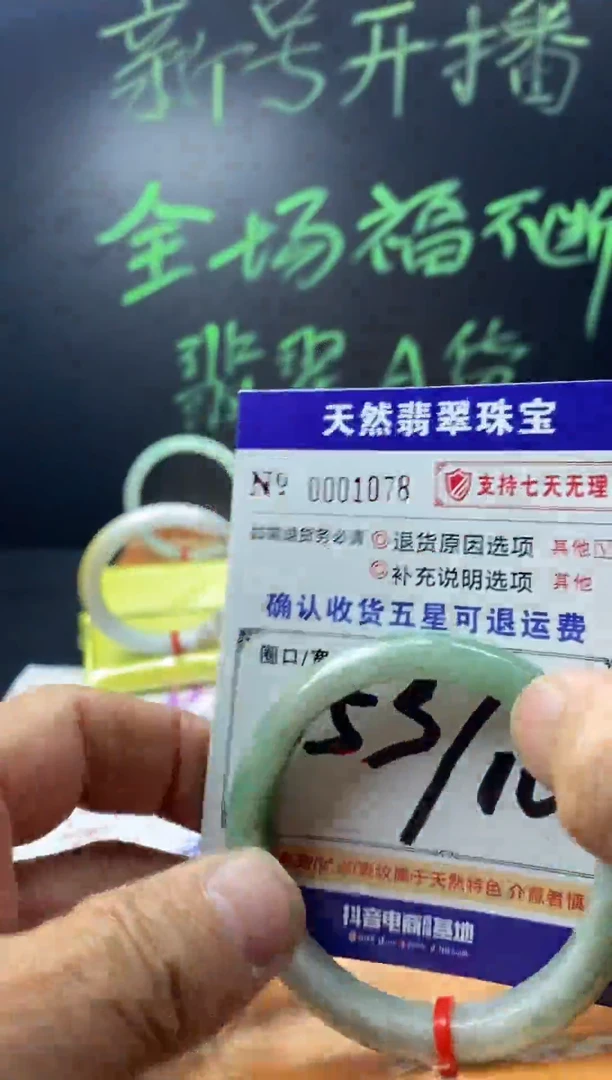 新号开播
全场福不断
翡翠A货
天然翡翠珠宝
Nº 0001078
支持七天无理
如需退货务必请 ◎退货原因选项 其他
◎补充说明选项 其他
确认收货五星可退运费
圈口/宽
53/10
纹属于天然特色 介意者慎
抖音电商 基地